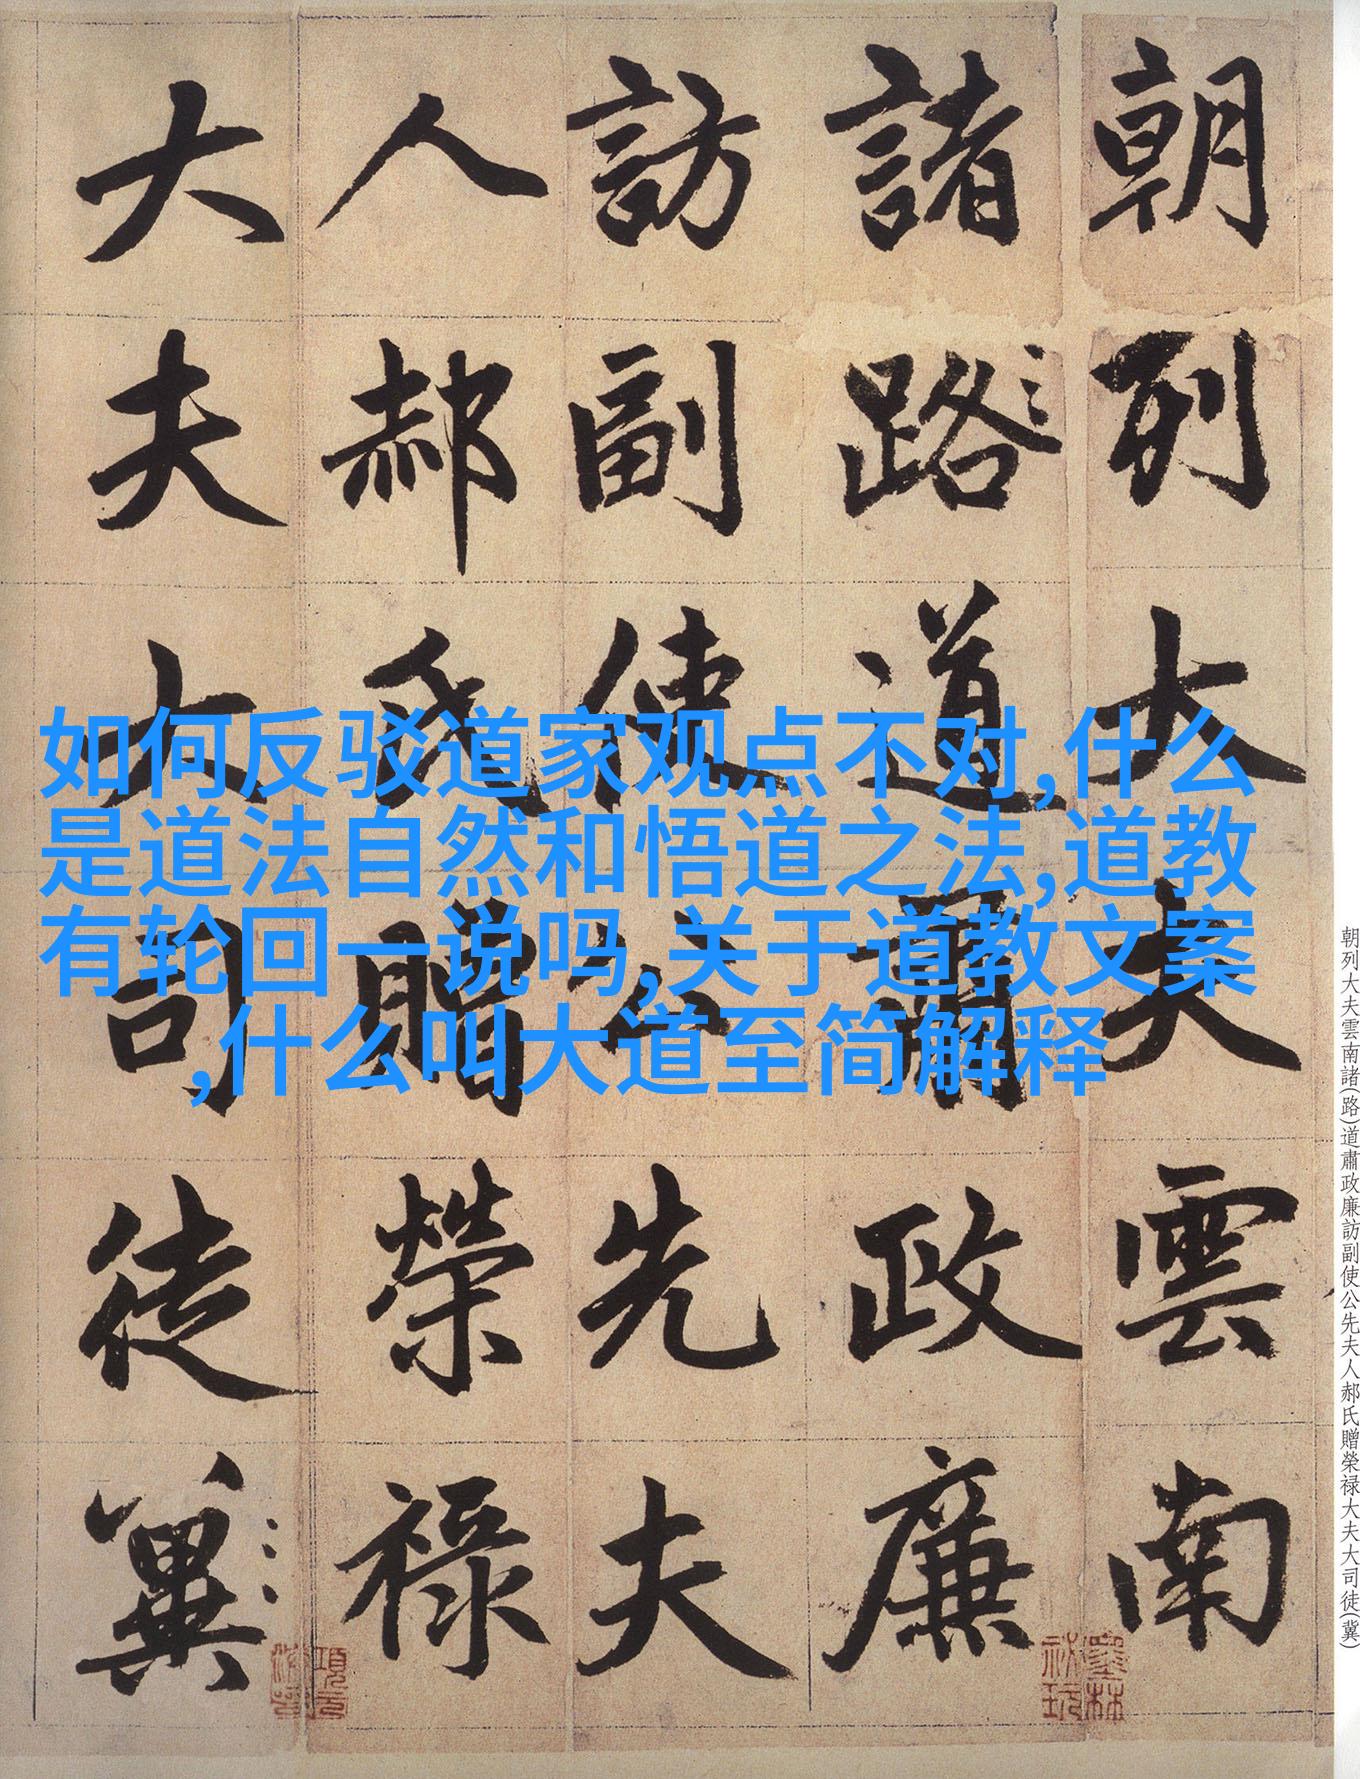 如何反驳道家观点不对,什么
是道法自然和悟道之法,道教
有轮回一说吗,关于道教文案
,什么叫大道至简解释
朝列大夫雲南
諸路道肅政廉
訪副使公先夫
人郝氏贈榮祿
大夫大司徒冀
朝列大夫雲南諸(路)道肅政廉訪副使公先夫人郝氏贈榮禄大夫大司徒(冀)
墨林
祕玩
項元
汴印